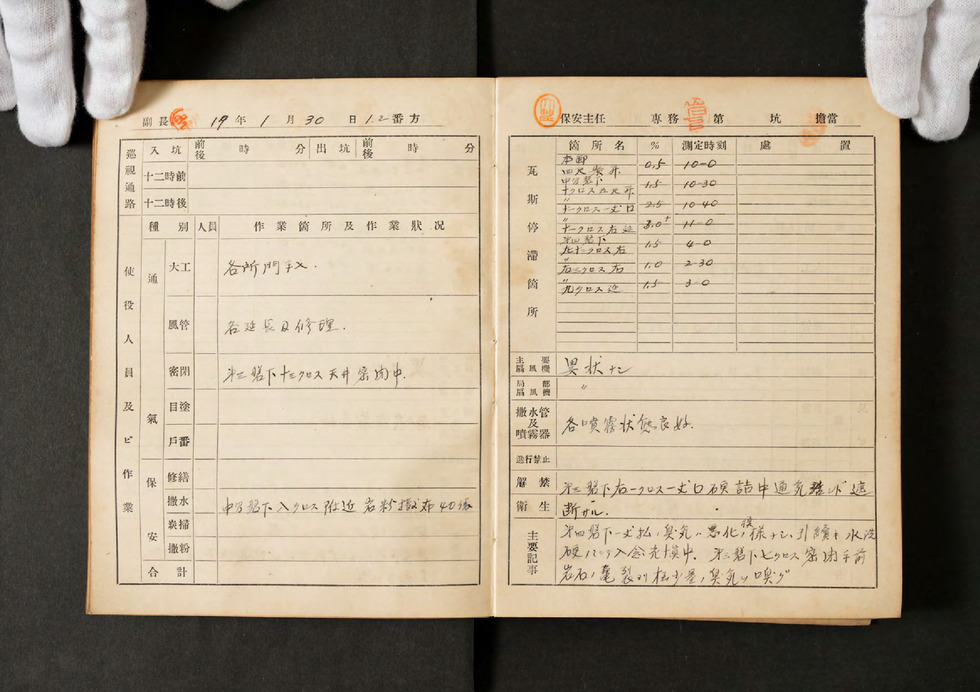 副長 19年1月30日12番方
巡視通路 入坑 前後 時 分 出坑 前後 時 分
十二時前
十二時後
種別 人員 作業箇所及作業狀況
使役人員及ビ作業
通氣
大工 各所門手入.
風管 各延長及修理.
密閉 第三盤下十三クロス天井密閉中.
目塗
戶番
保安
修繕
撒水 中万盤下入クロス附近岩粉撒布40袋
炭掃
撒粉
合計
保安主任 專務 第 坑 擔當
瓦斯停滯箇所
箇所名 % 測定時刻 處置
本卸
0.5 10-0
1.5 10-30
十一クロス一丈口 2.5 10-40
十一クロス右延 3.0+ 11-0
第四盤下
1.5 4-0
〃
右三クロス右 1.0 2-30
〃
九クロス延 1.5 3-0
主要扇風機 異狀ナシ
局部扇風機 〃
撒水管及噴霧器 各噴霧状態良好.
進行禁止
解禁 第三盤下右一クロス一丈口硬詰中通気
衛生 断サル.
主要記事
第四盤下一丈払ノ臭気ハ悪化ノ模様ナシ.引續キ水洗
硬パック入念充填中. 第三盤下七クロス密閉手前
岩石ノ亀裂ヨリ極少量ノ臭気ヲ嗅グ